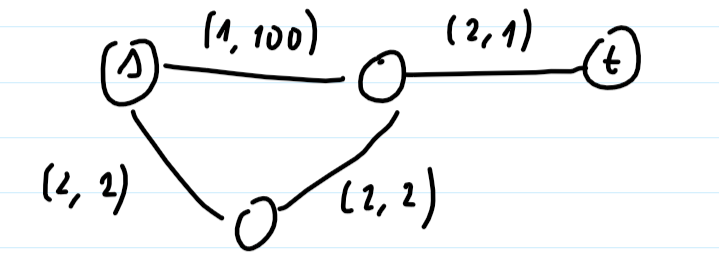 (1, 100)
(2, 1)
s
t
(2, 2)
(2, 2)